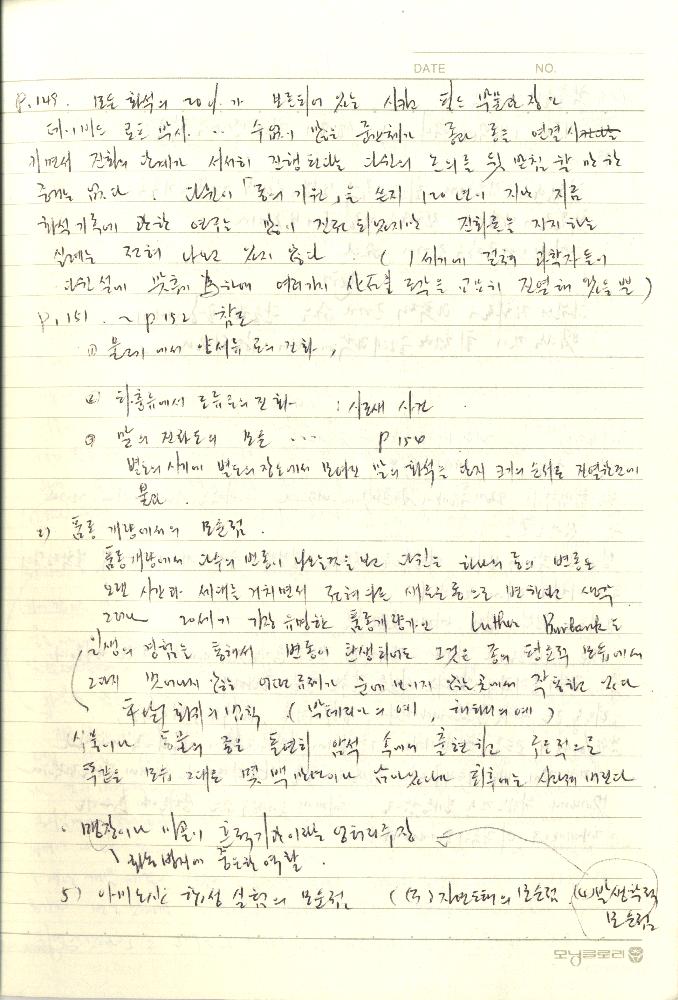 DATE NO.
P.149. 모든 화석의 20%가 보존되어 있는 시카고 필드 박물관장
데이비드 박사 ·· 수없이 많은 중간체가 종과 종을 연결시
키면서 진화의 단계가 서서히 진행된다는 다윈의 논의를 뒷받침할 만한
증거는 없다. 다윈이 「종의 기원」을 쓴지 120년이 지난 지금
화석 기록에 관한 연구는 많이 진척되었지만 진화론을 지지하는
실례는 전혀 나오고 있지 않다. (1세기에 걸쳐 과학자들이
다윈설에 맞추기 위하여 여러가지 교묘히 진열해 왔을 뿐)
P.151. ~ P152 참조
물고기에서 양서류로의 진화,
파충류에서 조류로의 진화 : 시조새 사건
③ 말의 진화도의 모순 ··· P154
별도의 시기에 별도의 장소에서 모아진 말의 화석을 단지 크기의 순서로 진열한것에
불과.
2) 품종 개량에서의 모순점.
품종개량에서 다수의 변종이 나오는것을 보고 다윈은 하나의 종의 변종도
오랜 시간과 세대를 거치면서 전혀 다른 새로운 종으로 변한다고 생각
그러나 20세기 가장 유명한 품종개량가인 Luther Burbank도
일생의 경험을 통해서 변종이 탄생하여도 그것은 종의 평균적 모습에서
그다지 벗어나지 않는 어떤 눈에 보이지 않는 곳에서 작용하고 있다
평균 회귀의 법칙 (박테리아의 예, 해패의 예)
식물이나 동물의 종은 돌연히 암석 속에서 출현하고
똑같은 모습 그대로 몇 백만년이나 살아남았다가 최후에는 사라져 버린다
· 맹장이나 미골이 흔적기관이라는 엉터리 주장
중요한 역할.
5) 아미노산 합성 실험의 모순점 (3) 자연도태의 모순점 (4) 발생학적
모순점
모닝글로리